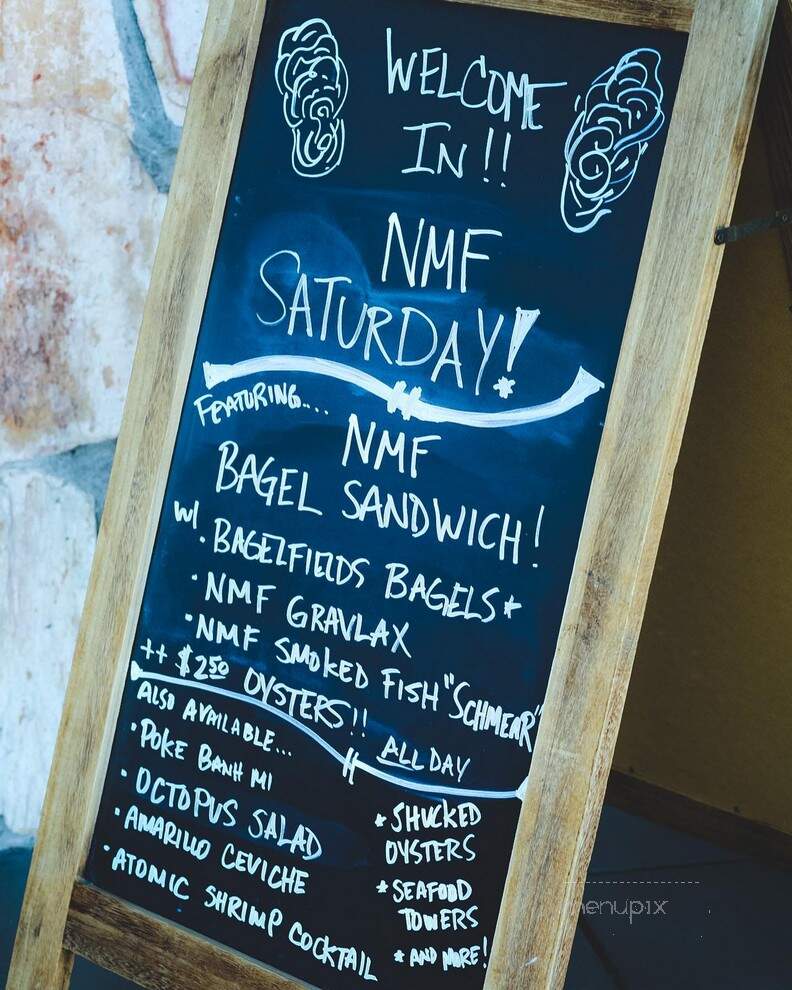 WELCOME
IN!!
NMF
SATURDAY!
FEATURING....
NMF
BAGEL SANDWICH!
w/. BAGELFIELDS BAGELS*
· NMF GRAVLAX
· NMF SMOKED FISH "SCHMEAR"
++ $2.50 OYSTERS!! ALL DAY
ALSO AVAILABLE...
· POKE BANH MI
· OCTOPUS SALAD
· AMARILLO CEVICHE
· ATOMIC SHRIMP COCKTAIL
* SHUCKED
OYSTERS
* SEAFOOD
TOWERS
* AND MORE!
menupix